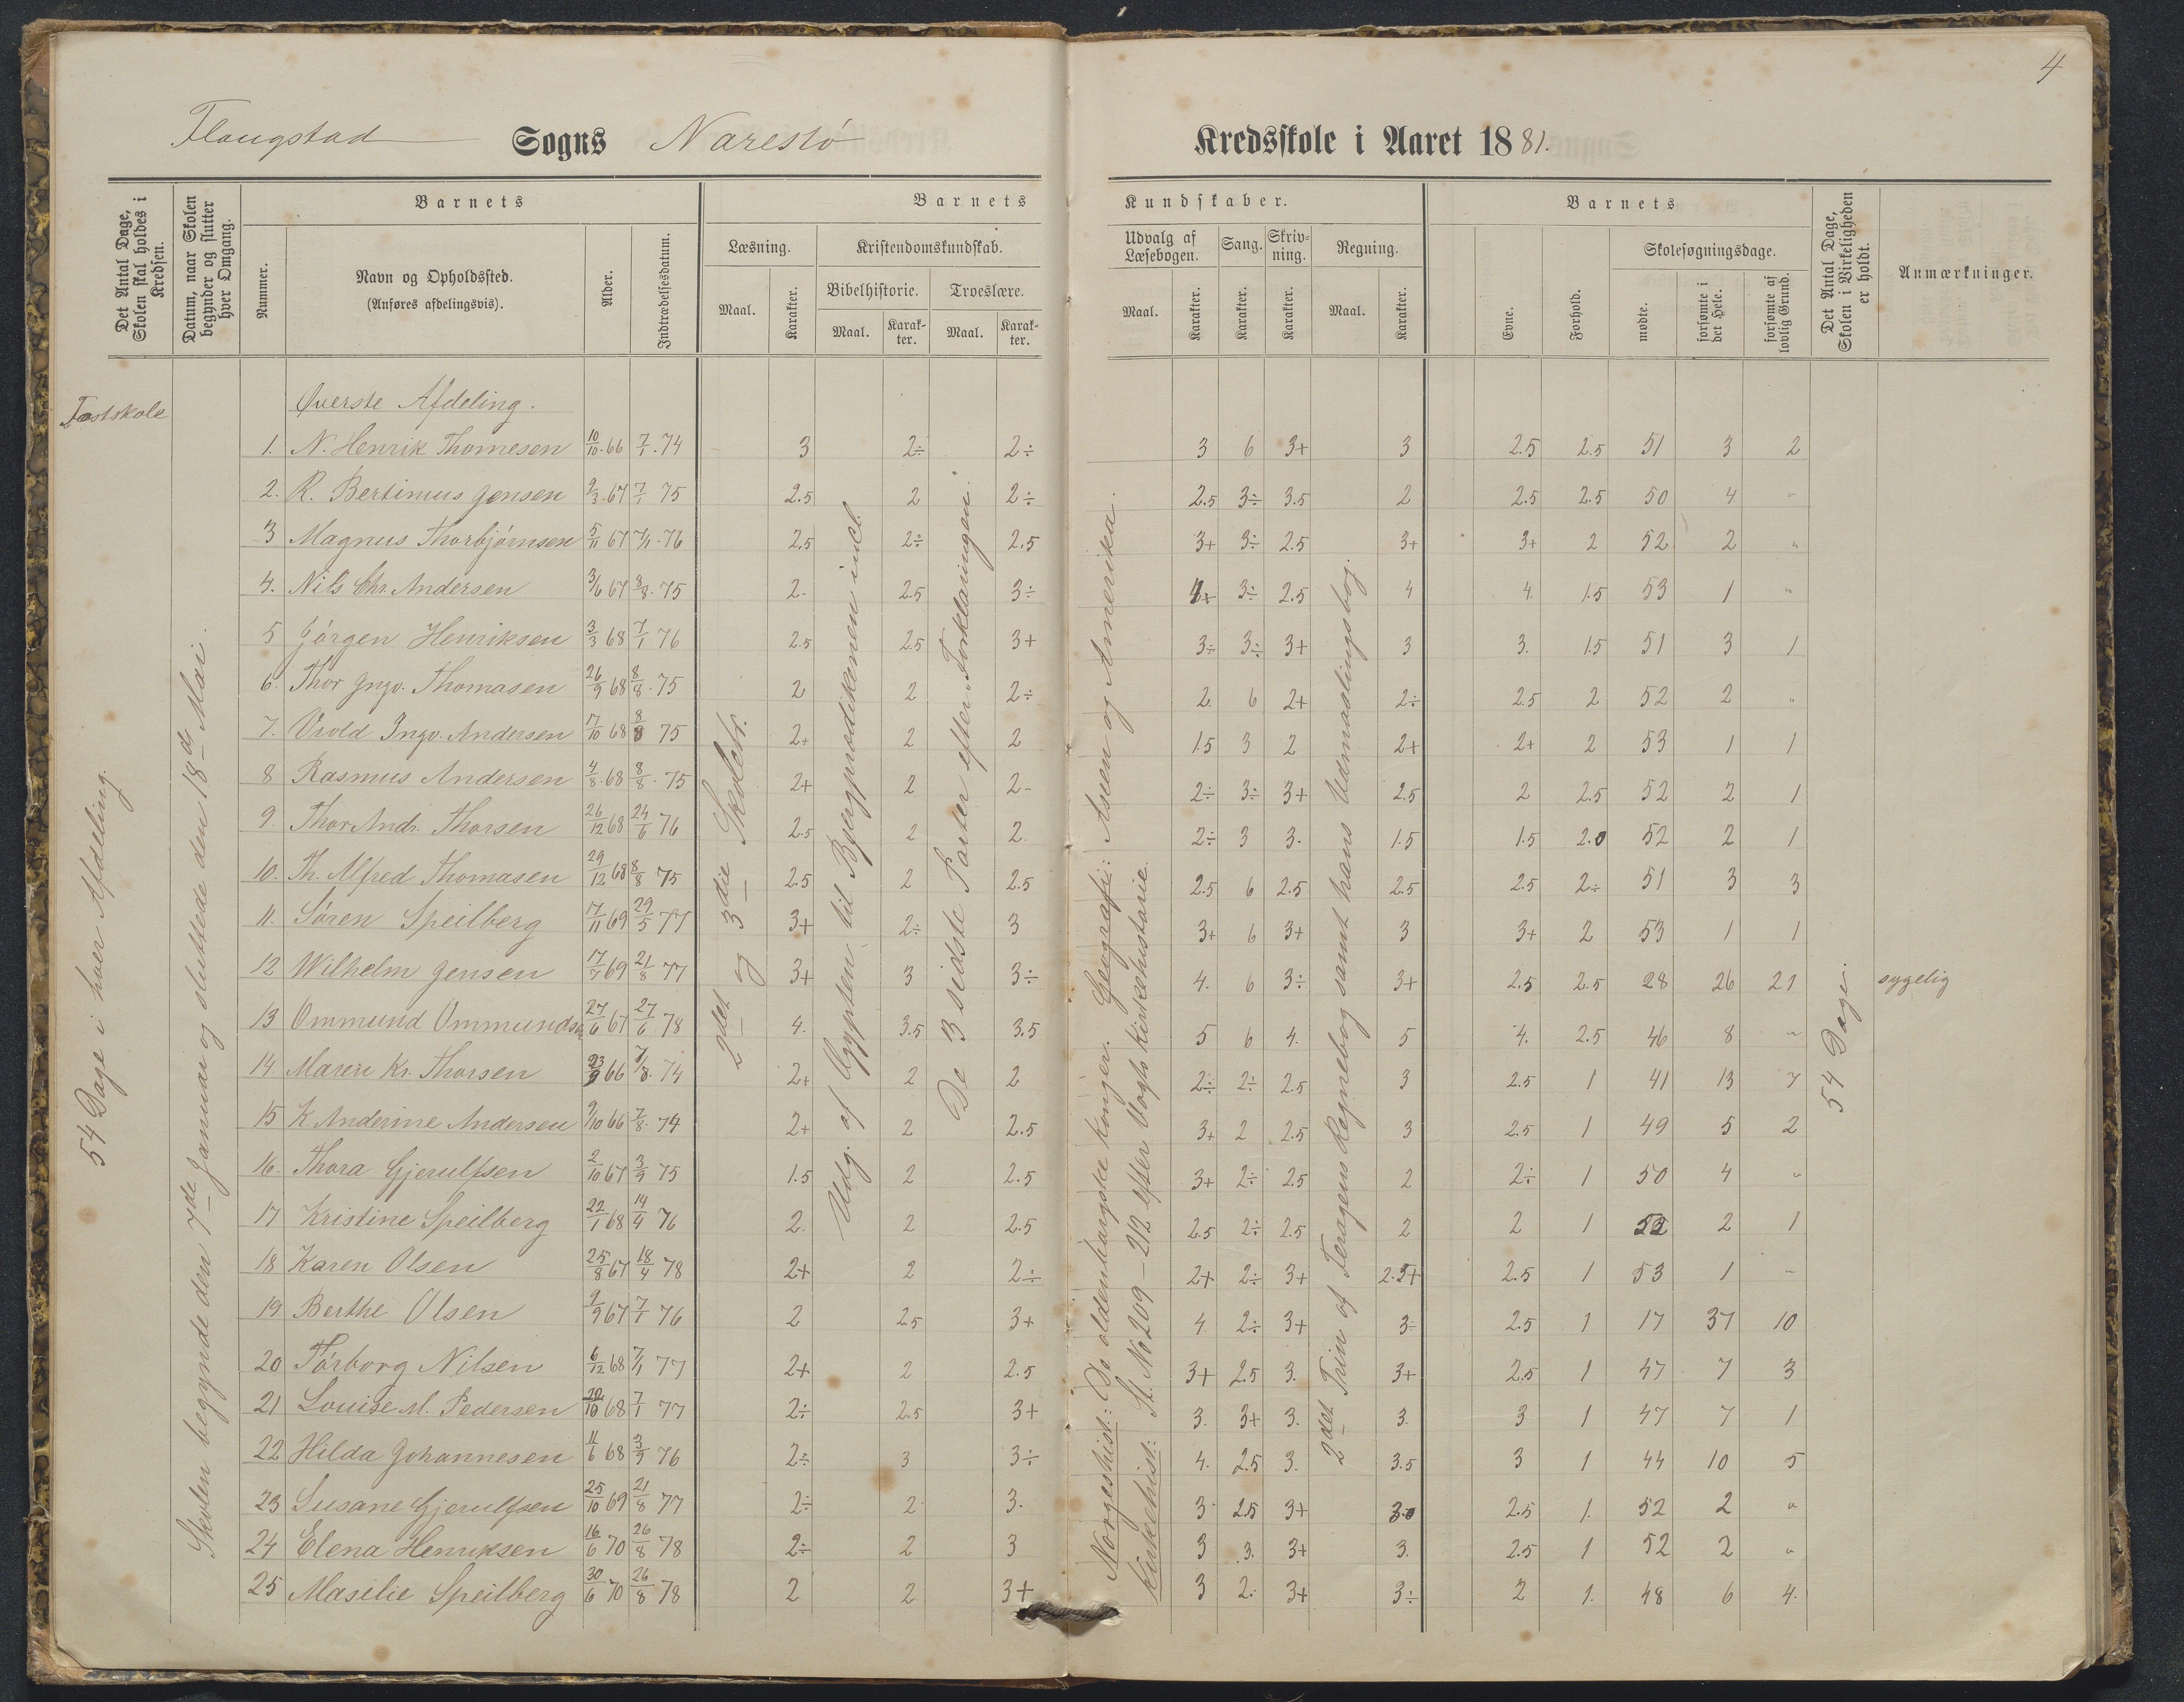 4
Flaugstad Sogns Narestö Kredsskole i Aaret 1881.
Det Antal Dage, Skolen skal holdes i Kredsen.
Datum, naar Skolen begynder og slutter hver Omgang.
Barnets
Nummer.
Navn og Opholdssted.
(Anføres afdelingsvis).
Alder.
Indtrædelsesdatum.
Barnets Kundskaber.
Læsning.
Maal. Karakter.
Kristendomskundskab.
Bibelhistorie. Troeslære.
Maal. Karakter. Maal. Karakter.
Udvalg af Læsebogen.
Maal. Karakter.
Sang. Karakter.
Skrivning. Karakter.
Regning.
Maal. Karakter.
Barnets
Evne. Forhold.
Skolesøgningsdage.
mødte. forsømte i det Hele. forsømte af lovlig Grund.
Det Antal Dage, Skolen i Virkeligheden er holdt.
Anmærkninger.
Fastskole
54 Dage i hver Afdeling.
Skolen begynde den 7de Januar og sluttede den 18d Mai.
2det og 3die Skoletr.
Udg. af Ægypten til Bjergprædikenen incl.
De 3 sidste Parter efter Forklaringen.
Norgeshist: De oldenborgske Konger. Geografi: Asien og Amerika.
Kirkehist: St. No 209 - 212 efter Vogts Kirkehistorie.
2det Trin af Feragens Regnebog samt hans Udmaalingsbog.
54 Dage.
Øverste Afdeling.
1. N. Henrik Thomesen 10/10.66 7/1.74 3 2÷ 2÷ 3 6 3+ 3 2.5 2.5 51 3 2
2. R. Bertinius Jensen 9/3.67 7/1 75 2.5 2 2÷ 2.5 3÷ 3.5 2 2.5 2.5 50 4 "
3 Magnus Thorbjörnsen 5/11 67 7/1.76 2.5 2÷ 2.5 3+ 3÷ 2.5 3+ 3+ 2 52 2 "
4. Nils Chr. Andersen 3/6 67 8/8.75 2. 2.5 3÷ 4+ 3÷ 2.5 4 4. 1.5 53 1 "
5 Jörgen Henriksen 3/3 68 7/1 76 2.5 2.5 3+ 3÷ 3÷ 3+ 3 3. 1.5 51 3 1
6. Thor Ingv. Thomasen 26/9 68 8/8.75 2 2 2÷ 2. 6 2+ 2÷ 2.5 2 52 2 "
7. Uvold Ingv. Andersen 17/10 68 8/8 75 2+ 2 2 1.5 3 2 2+ 2+ 2 53 1 1
8 Rasmus Andersen 4/8.68 8/8.75 2+ 2 2- 2÷ 3÷ 3+ 2.5 2 2.5 52 2 1
9. Thor Andr. Thorsen 26/12 68 24/6 76 2.5 2 2. 2÷ 3 3. 1.5 1.5 2.0 52 2 1
10. Th. Alfred Thomasen 29/12 68 8/8 75 2.5 2 2.5 2.5 6 2.5 2.5 2.5 2÷ 51 3 3
11. Sören Speilberg 17/11 69 29/5 77 3+ 2÷ 3 3+ 6 3+ 3 3+ 2 53 1 1
12 Wilhelm Jensen 17/7 69 21/8 77 3+ 3 3÷ 4. 6 3÷ 3+ 2.5 2.5 28 26 21 sygelig
13 Ommund Ommundsen 27/6 67 27/6.78 4. 3.5 3.5 5 6 4. 5 4. 2.5 46 8 "
14 Maren Kr. Thorsen 23/9 66 7/8.74 2+ 2 2 2÷ 2÷ 2.5 3 2.5 1 41 13 7
15 K. Anderine Andersen 9/10 66 7/8.74 2+ 2 2.5 3+ 2 2.5 3 2.5 1 49 5 2
16. Thora Gjerulfsen 2/10 67 3/9 75 1.5 2 2.5 3+ 2÷ 2.5 2 2÷ 1 50 4 "
17 Kristine Speilberg 22/1 68 14/4 76 2. 2 2.5 2.5 2÷ 2.5 2 2 1 52 2 1
18 Karen Olsen 25/8 67 18/4 78 2+ 2 2÷ 2+ 2÷ 3+ 2.5+ 2.5 1 53 1 -
19 Berthe Olsen 9/9 67 7/1 76 2 2.5 3+ 4 2÷ 3+ 3÷ 2.5 1 17 37 10
20 Törborg Nilsen 6/12 68 7/1 77 2+ 2 2.5 3+ 2.5 3. 3+ 2.5 1 47 7 3
21 Louise M. Pedersen 20/10 68 7/1 77 2÷ 2.5 3+ 3. 3+ 3. 3. 3 1 47 7 1
22 Hilda Johannesen 11/6 68 3/9 76 2÷ 3 3÷ 4. 2.5 3. 3.5 3 1 44 10 5
23 Susane Gjerulfsen 25/10 69 21/8 77 2÷ 2 3. 3 2.5 3+ 3.0 2.5 1. 52 2 "
24 Elena Henriksen 16/6 70 26/8 78 2÷ 2 3 3 3. 3+ 3. 2.5 1 52 2 "
25 Masilie Speilberg 30/6 70 26/8 78 2 2 3+ 3 2. 3+ 3÷ 2 1. 48 6 4.